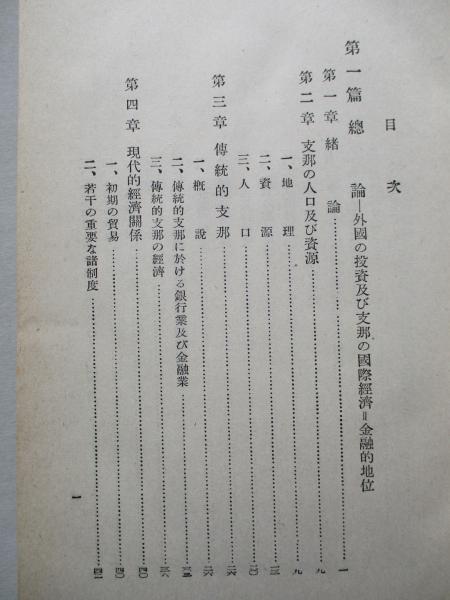 目次
第一篇 總論―外國の投資及び支那の國際經濟=金融的地位
第一章 緖論……一
第二章 支那の人口及び資源……九
一、地理……九
二、資源……
三、人口……二〇
第三章 傳統的支那……二六
一、概說……二六
二、傳統的支那に於ける銀行業及び金融業……
三、傳統的支那の經濟……
第四章 現代的經濟關係……四〇
一、初期の貿易……四〇
二、若干の重要な諸制度……
一